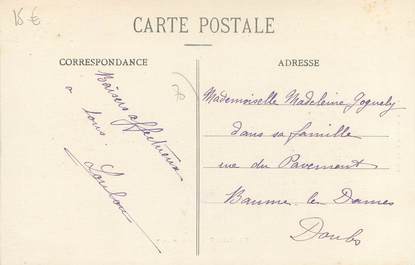 15 €
CARTE POSTALE
CORRESPONDANCE
Baisers affectueux
à tous.
Loulou
ADRESSE
Mademoiselle Madeleine Goguely
dans sa famille
rue du Pavement
Baume les Dames
Doubs